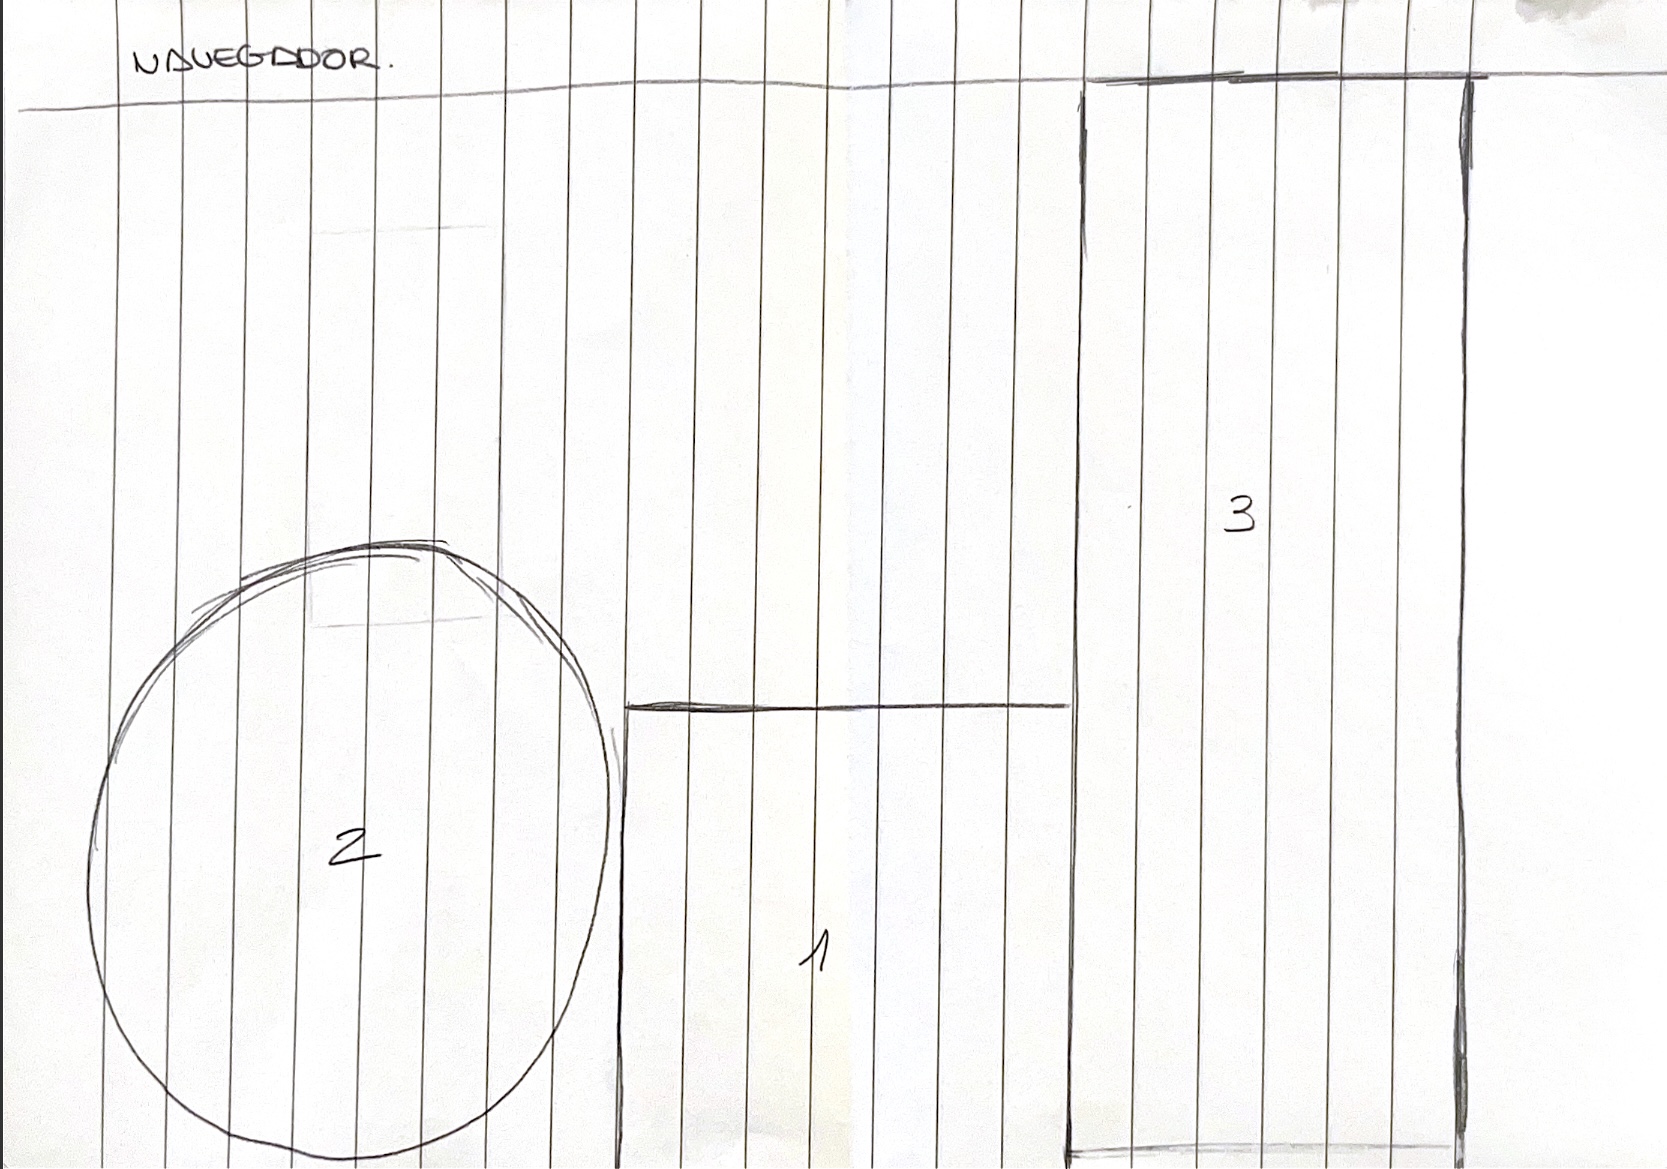 NAVEGADOR.
3
2
1